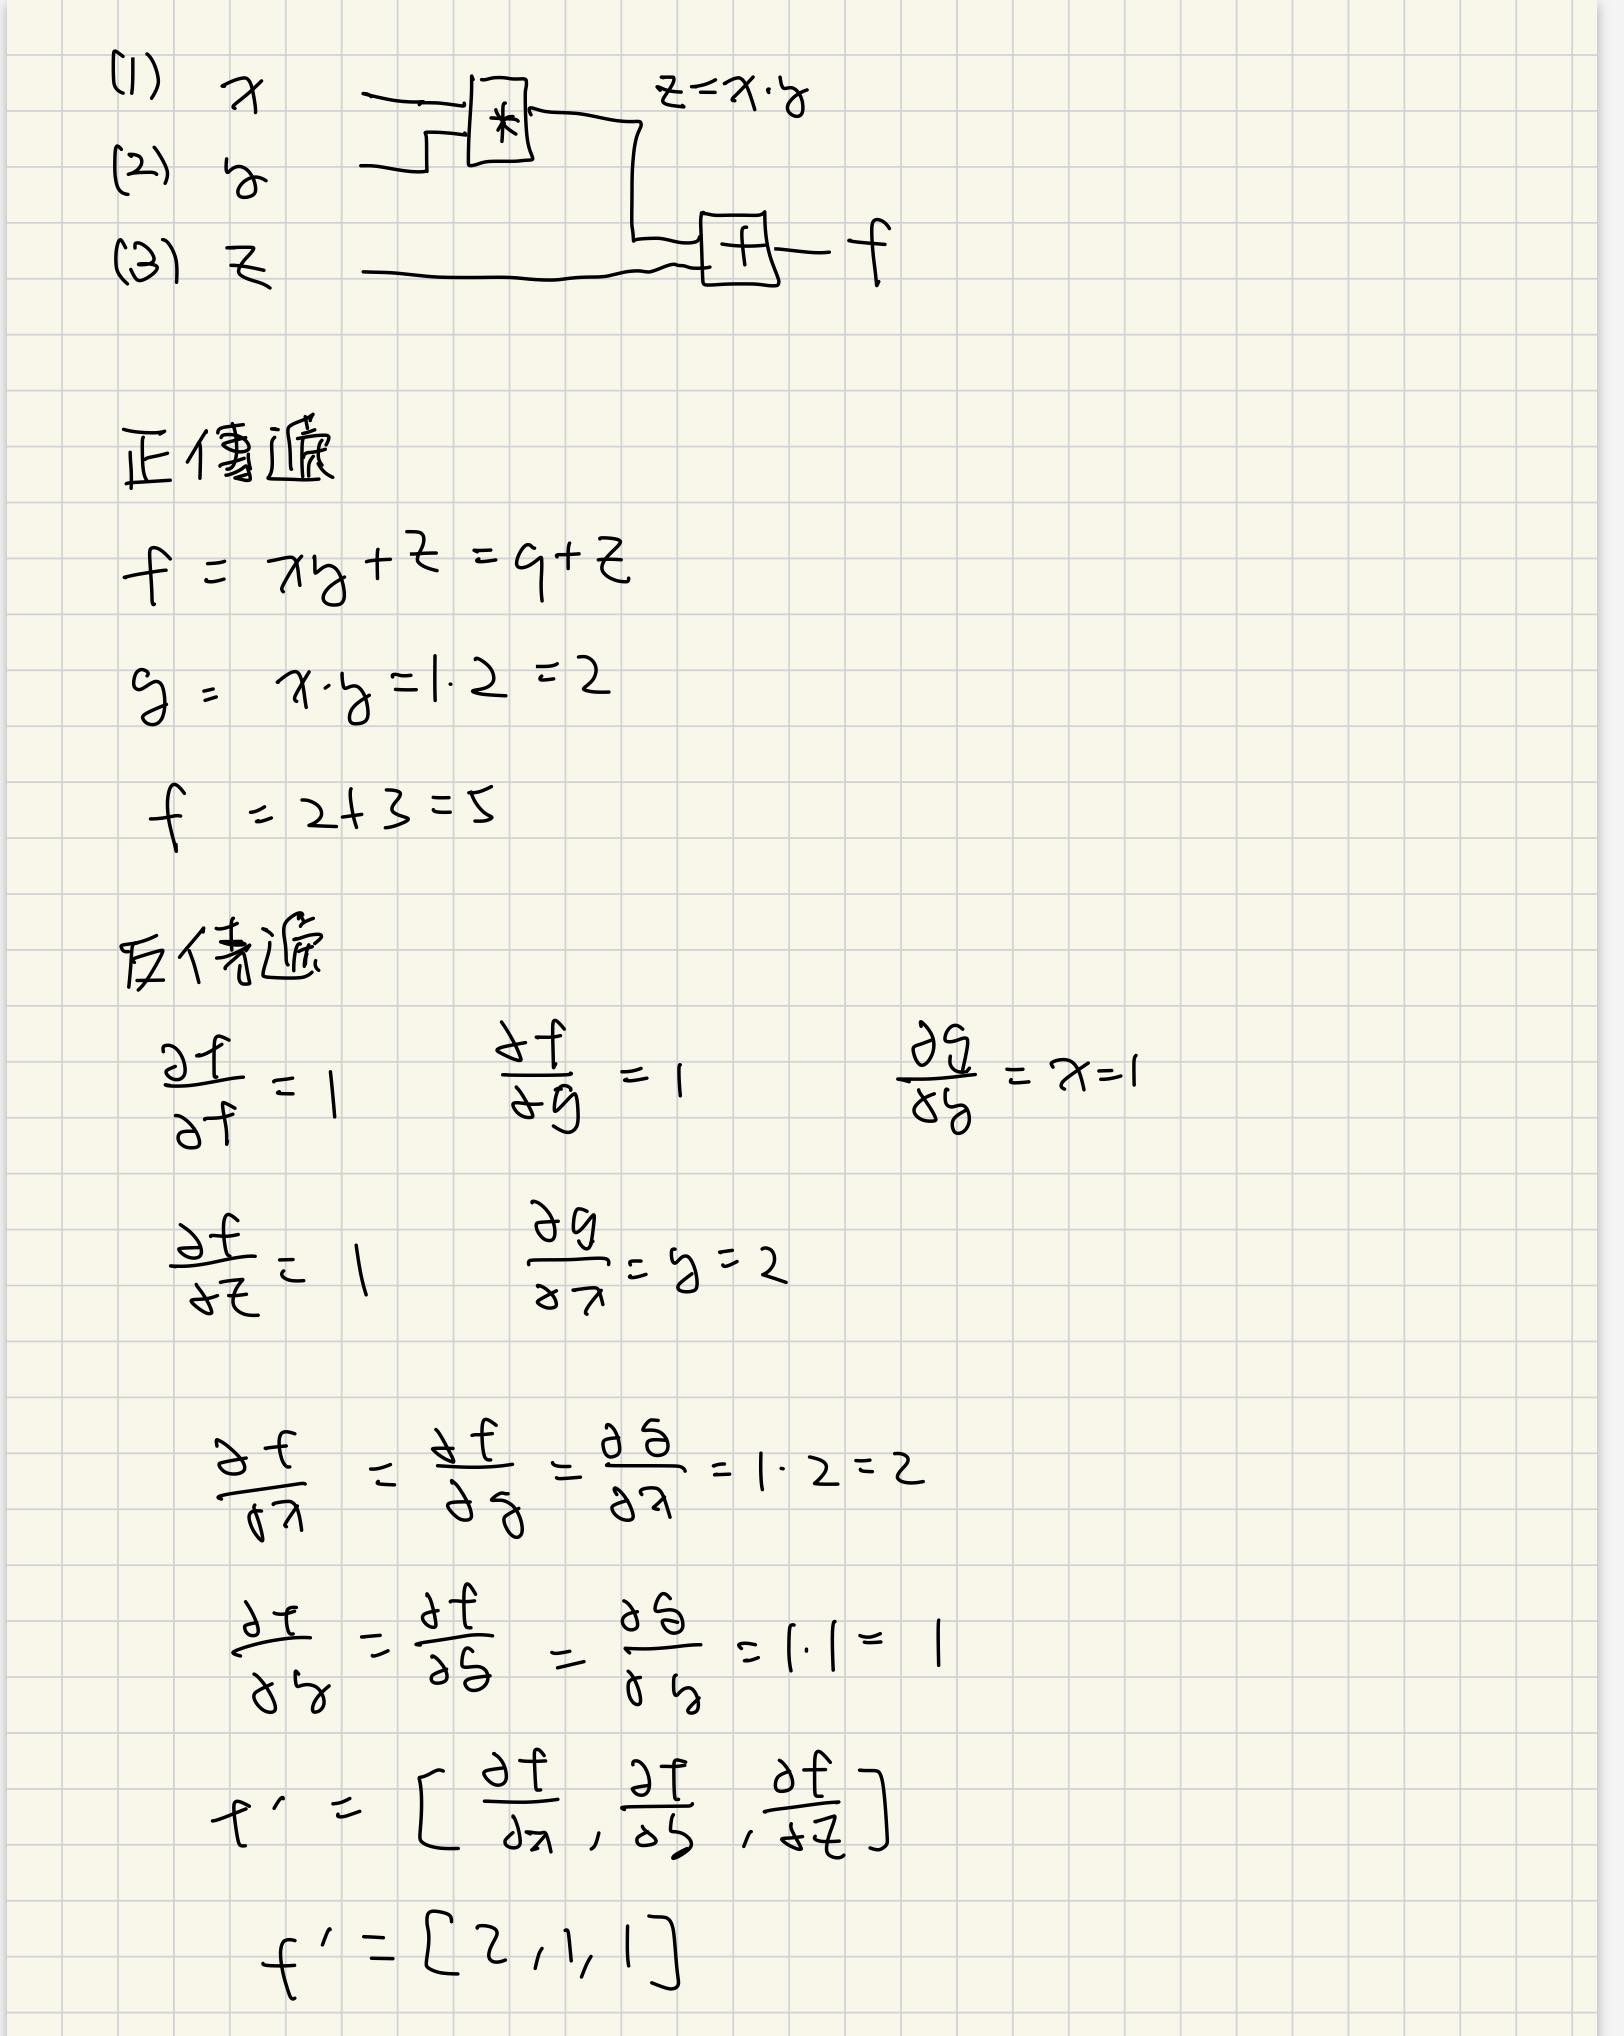 (1) x * z=x·y
(2) y
(3) z + f
正傳遞
f = xy+z = q+z
g = x·y=1·2=2
f = 2+3=5
反傳遞
∂f/∂f = 1 ∂f/∂g = 1 ∂g/∂y = x=1
∂f/∂z = 1 ∂g/∂x = y=2
∂f/∂x = ∂f/∂g = ∂g/∂x = 1·2=2
∂f/∂y = ∂f/∂g = ∂g/∂y = 1·1= 1
f' = [∂f/∂x, ∂f/∂y, ∂f/∂z]
f' = [2,1,1]